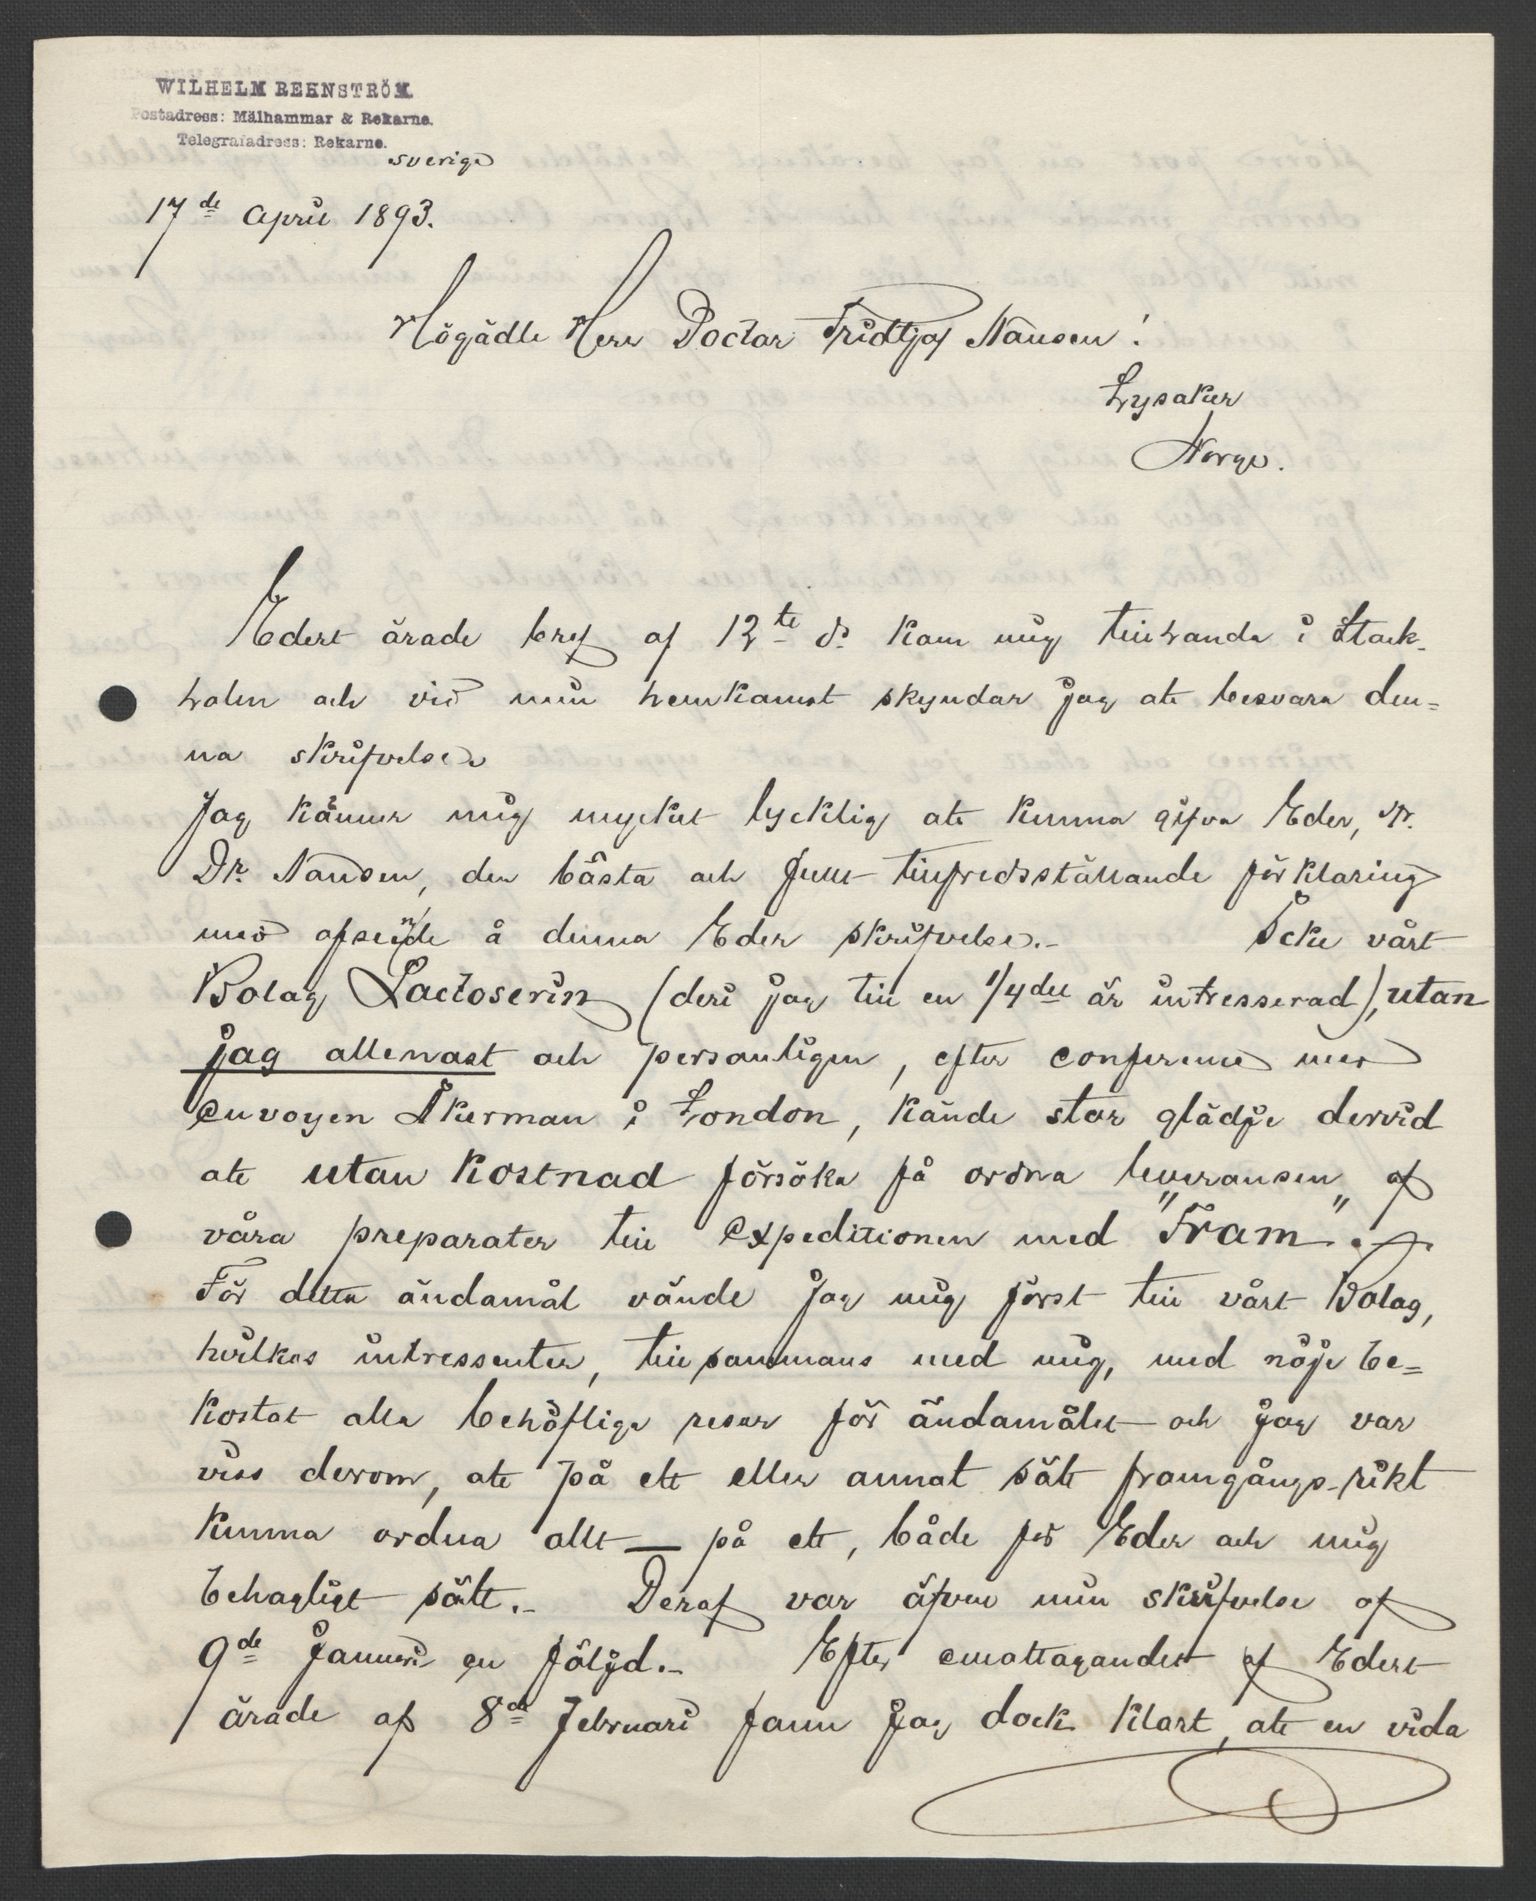 WILHELM REHNSTRÖM.
Postadress: Mälhammar & Rekarne.
Telegrafadress: Rekarne.
Sverige
17de April 1893.
Högädle Herr Doctor Fridtjof Nansen!
Lysaker
Norge.
Edert ärade bref af 12te ds kom mig tillhanda i Stock-
holm och vid min hemkomst skyndar jag att besvara den=
na skrifvelse.
Jag känner mig mycket lycklig att kunna gifva Eder, Hr.
Dr. Nansen, den bästa och fullt tillfredsställande förklaring
med afseende å denna Eder skrifvelse.- Icke vårt
Bolag Lactoserin (deri jag till en 1/4del är intresserad), utan
jag allenast och personligen, efter conference med
envoyen Åkerman i London, kände stor glädje dervid
att utan kostnad försöka få ordna leveransen af
våra preparater till Expeditionen med "Fram".
För detta ändamål vände jag mig först till vårt Bolag,
hvilkas intressenter, tillsammans med mig, med nöje be=
kostat alla behöfliga resor för ändamålet och jag var
viss derom, att på ett eller annat sätt framgångs-rikt
kunna ordna allt — på ett, både för Eder och mig
behagligt sätt.- Deraf var äfven min skrifvelse af
9de Januari en följd.- Efter emottagandet af Edert
ärade af 8de Februari fann jag dock klart, att en vida